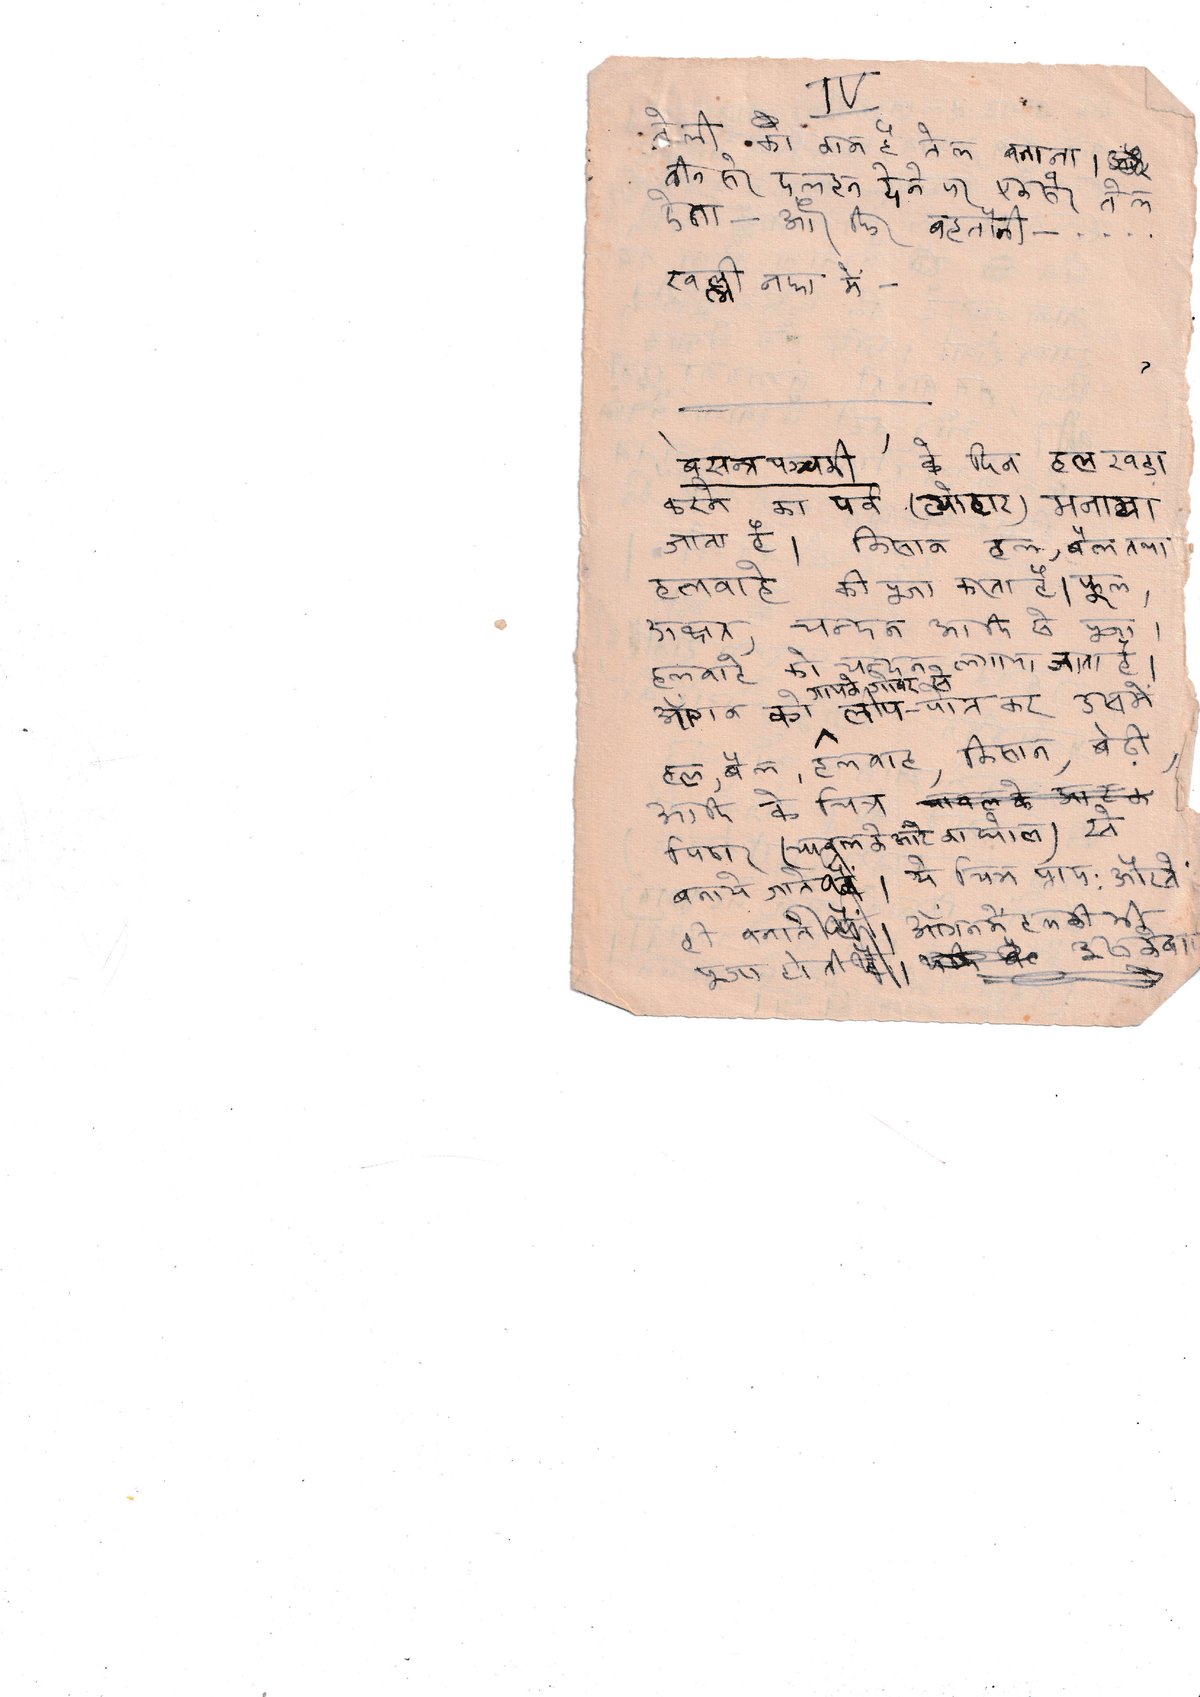 IV
तेली का काम है तेल बनाना। और
तीन सेर दलहन देने पर एक सेर तेल
देता — और फिर बहतौनी — . . . . .
खल्ली नफा में —
'बसन्त पञ्चमी' के दिन हल खड़ा
करने का पर्व (त्योहार) मनाया
जाता है। किसान हल, बैल तथा
हलवाहे की पूजा करता है। फूल,
अक्षत, चन्दन आदि से पूजा।
हलवाहे को चन्दन लगाया जाता है।
आँगन को गायके गोबर से लीप-पोत कर उसमें
हल, बैल, हलवाह, किसान, बेढ़ी,
आदि के चित्र चावल के आटे के
पिठार (चावल के आटे का घोल) से
बनाये जाते हैं। ये चित्र प्रायः औरतें
ही बनाती हैं। आँगन में हल की भी
पूजा होती है। इसके बाद